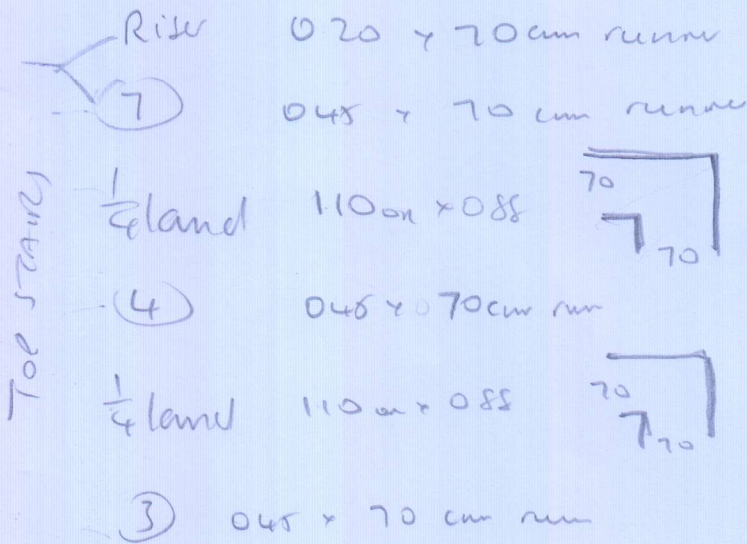 TOP STAIRS
Riser 0 20 x 70 cm runner
7 045 x 70 cm runner
1/4 land 110 on x 088
70
70
4 045 x 070 cm run
1/4 land 110 on x 088
70
70
3 045 x 70 cm run